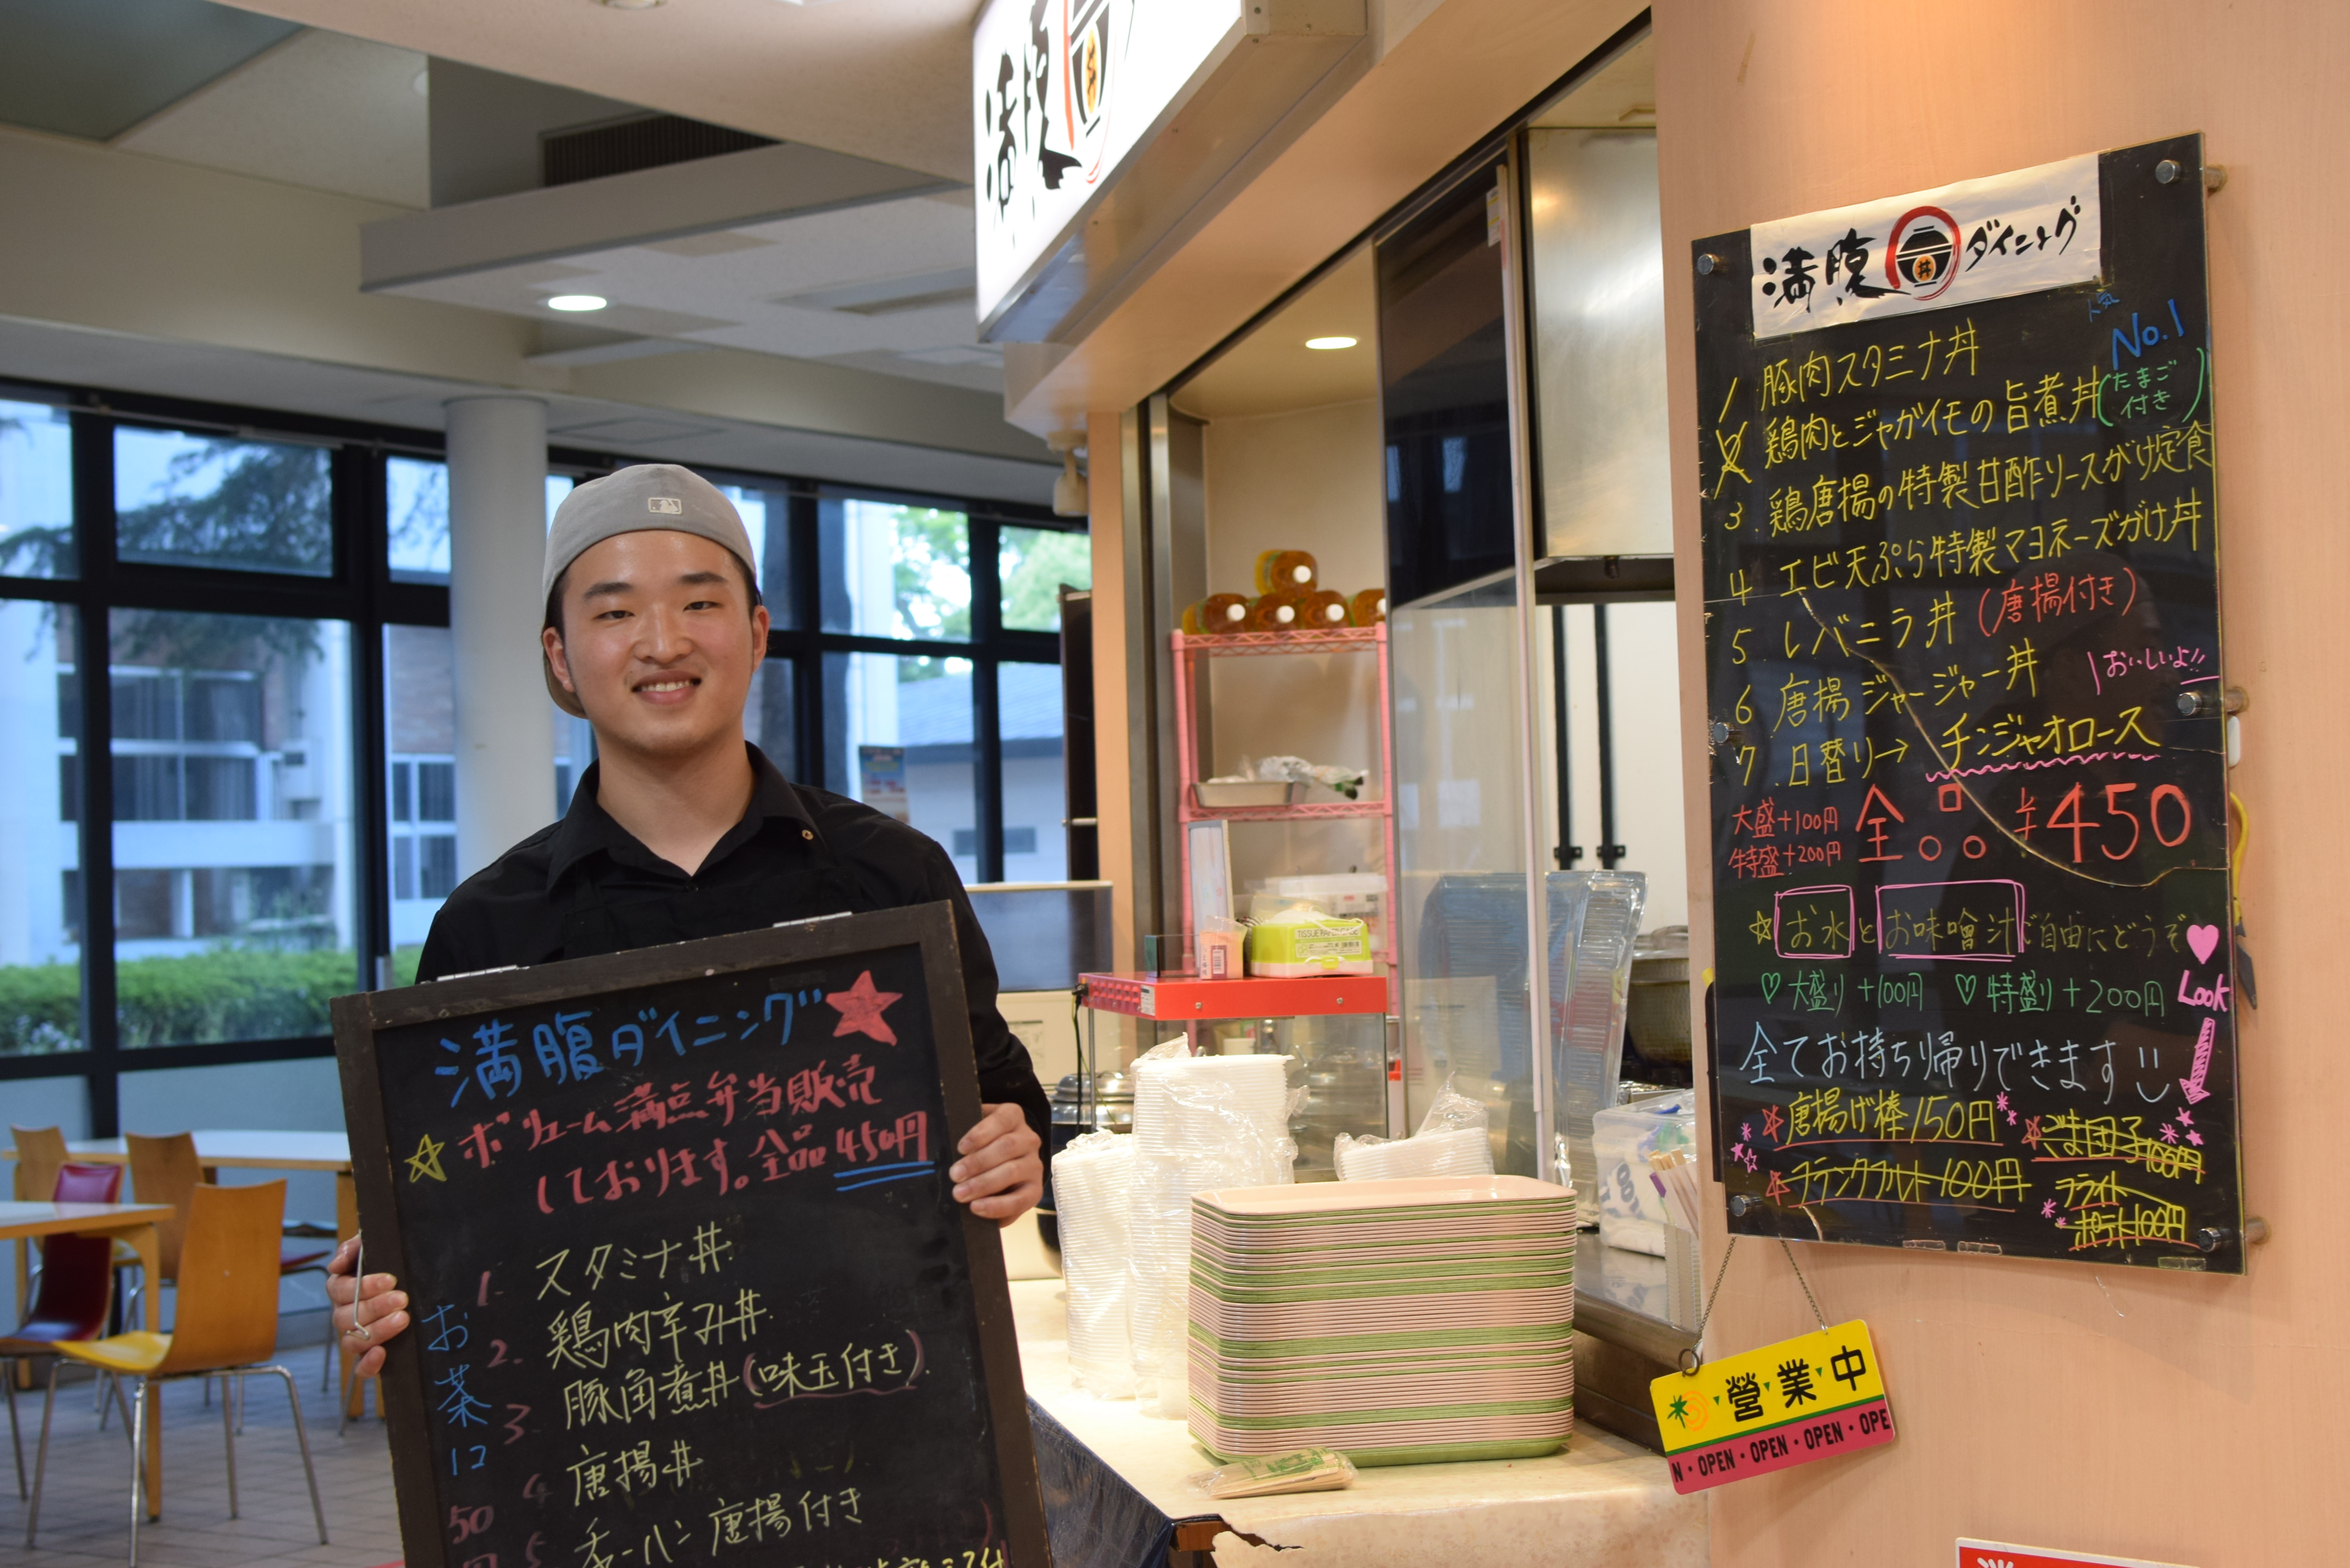 満腹
満腹 丼 ダイニング
人気
No.1
1 豚肉スタミナ丼
2 鶏肉とジャガイモの旨煮丼(たまご付き)
3. 鶏唐揚の特製甘酢ソースがけ定食
4 エビ天ぷら特製マヨネーズがけ丼
5 レバニラ丼(唐揚付き)
6 唐揚ジャージャー丼 おいしいよ!!
7. 日替り→ チンジャオロース
大盛+100円
特盛+200円
全品 ¥450
☆お水とお味噌汁ご自由にどうぞ
♡大盛り+100円 ♡特盛り+200円
Look
全てお持ち帰りできます
唐揚げ棒150円
ごま団子100円
フランクフルト100円
フライドポテト100円
営業中
N・OPEN・OPEN・OPEN・OPE
満腹ダイニング
☆ボリューム満点弁当販売
しております。全品450円
1. スタミナ丼
2. 鶏肉辛み丼
3. 豚角煮丼(味玉付き)
4 唐揚丼
5 チャーハン唐揚付き
お茶
50